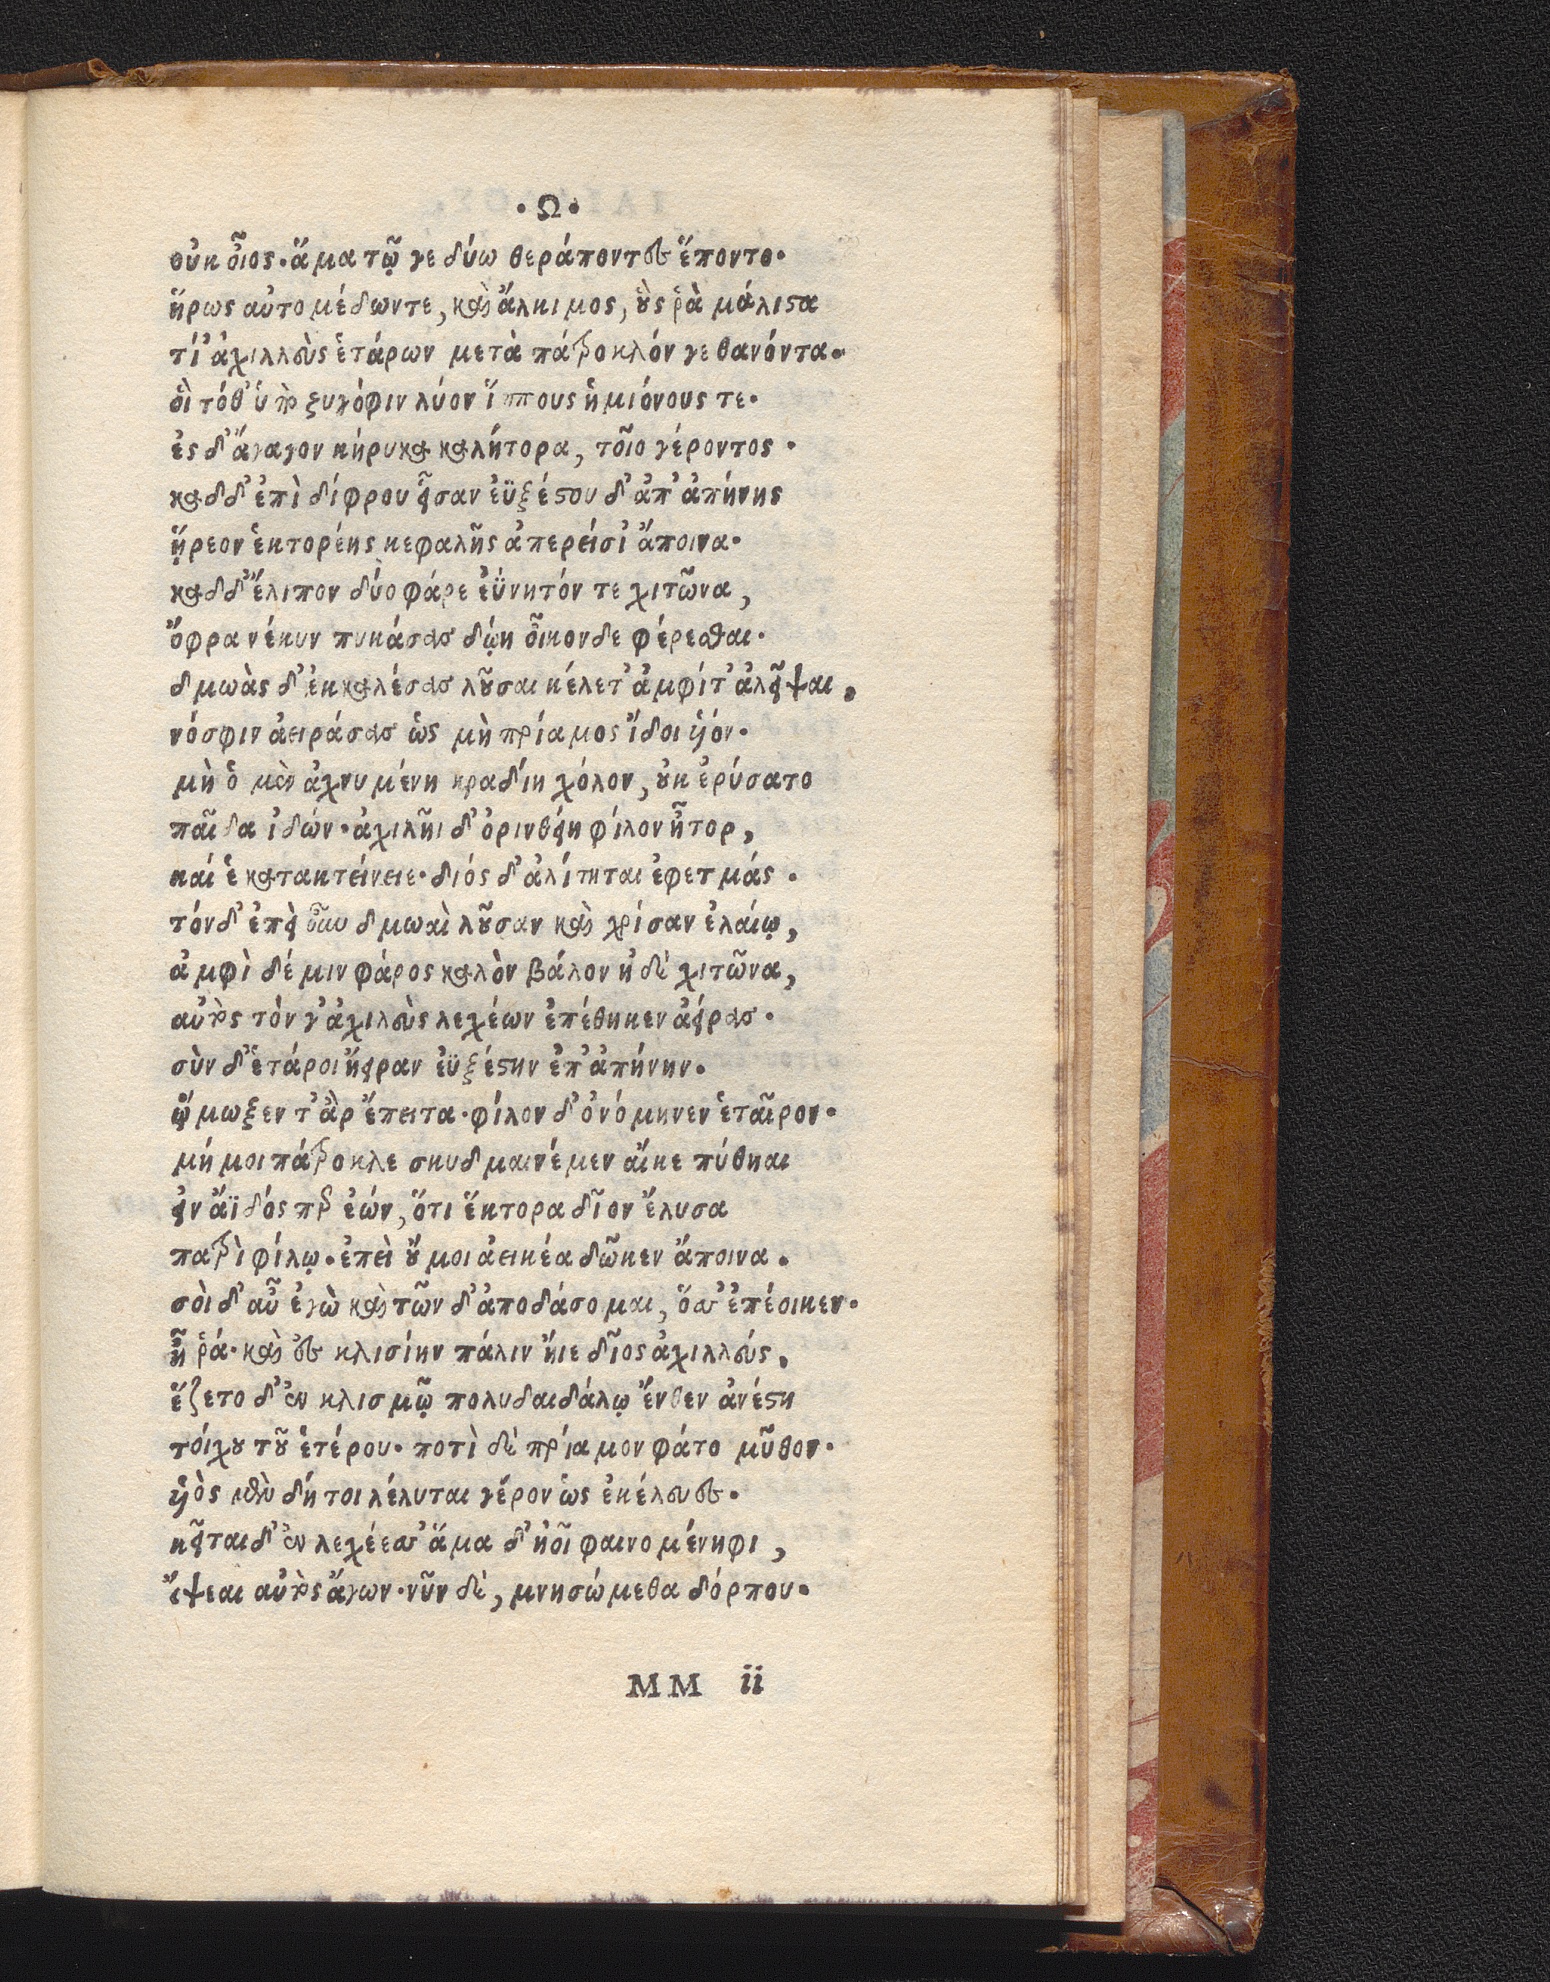 ·Ω·
οὐκ οἶος· ἅμα τῷ γε δύω θεράποντες ἕποντο·
ἥρως αὐτομέδωντε, καὶ ἄλκιμος, οὓς ῥὰ μάλιστα
τί' ἀχιλλεὺς ἑτάρων μετὰ πάτροκλόν γε θανόντα·
οἳ τόθ' ὑπὸ ζυγόφιν λύον ἵππους ἡμιόνους τε·
ἐς δ' ἄγαγον κήρυκα καλήτορα, τοῖο γέροντος·
καδδ' ἐπὶ δίφρου εἷσαν ἐϋξέστου δ' ἀπ' ἀπήνης
ᾕρεον ἑκτορέης κεφαλῆς ἀπερείσι' ἄποινα·
καδδ' ἔλιπον δύο φάρε' ἐΰνητόν τε χιτῶνα,
ὄφρα νέκυν πυκάσας δῴη οἶκον δε φέρεσθαι·
δμωὰς δ' ἐκκαλέσας λοῦσαι κέλετ' ἀμφίτ' ἀλεῖψαι,
νόσφιν ἀειράσας ὡς μὴ πρίαμος ἴδοι ὑόν·
μὴ ὁ μὲν ἀχνυμένη κραδίη χόλον, οὐκ ἐρύσατο
παῖδα ἰδών· ἀχιλῆι δ' ὀρινθείη φίλον ἦτορ,
καί ἑ κατακτείνειε· διός δ' ἀλίτηται ἐφετμάς·
τόνδ' ἐπεὶ οὖν δμωαὶ λοῦσαν καὶ χρίσαν ἐλαίῳ,
ἀμφὶ δέ μιν φάρος καλὸν βάλον ἠδὲ χιτῶνα,
αὐτὸς τόν γ' ἀχιλεὺς λεχέων ἐπέθηκεν ἀείρας·
σὺν δ' ἑτάροι ἤειραν ἐϋξέστην ἐπ' ἀπήνην·
ᾤμωξεν τ' ἂρ ἔπειτα· φίλον δ' ὀνόμηνεν ἑταῖρον·
μή μοι πάτροκλε σκυδμαινέμεν αἴκε πύθηαι
εἰν ἄϊδός περ ἐών, ὅτι ἕκτορα δῖον ἔλυσα
πατρὶ φίλῳ· ἐπεὶ οὔ μοι ἀεικέα δῶκεν ἄποινα·
σὸι δ' αὖ ἐγὼ καὶ τῶν δ' ἀποδάσομαι, ὅσσ' ἐπέοικεν·
ἦ ῥά· καὶ ἐς κλισίην πάλιν ἤιε δῖος ἀχιλλεύς,
ἕζετο δ' ἐν κλισμῷ πολυδαιδάλῳ ἔνθεν ἀνέστη
τοίχου τοῦ ἑτέρου· ποτὶ δὲ πρίαμον φάτο μῦθον·
ὑὸς μὲν δή τοι λέλυται γέρον ὡς ἐκέλευες·
κεῖται δ' ἐν λεχέεσσ' ἅμα δ' ἠοῖ φαινομένηφι,
ὄψεαι αὐτὸς ἄγων· νῦν δὲ, μνησώμεθα δόρπου·
MM ii